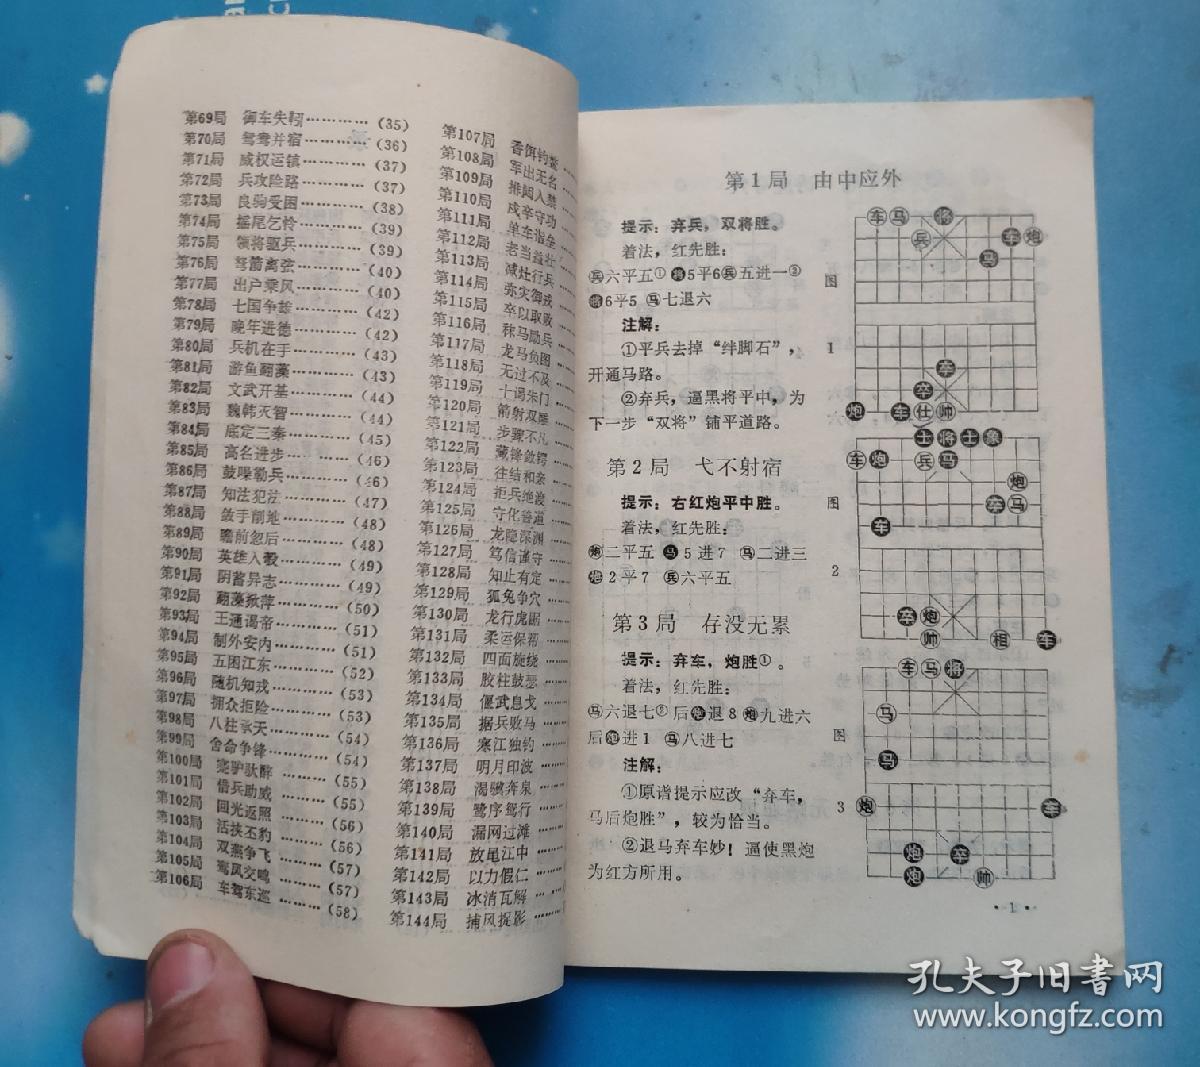 第69局 御车失轫…………(35)
第70局 鸳鸯并宿…………(36)
第71局 威权运镇…………(37)
第72局 兵攻险路…………(37)
第73局 良驹受困…………(38)
第74局 摇尾乞怜…………(39)
第75局 领将驱兵…………(39)
第76局 弩箭离弦…………(40)
第77局 出户乘风…………(40)
第78局 七国争雄…………(42)
第79局 晚年进德…………(42)
第80局 兵机在手…………(43)
第81局 游鱼翻藻…………(43)
第82局 文武开基…………(44)
第83局 魏韩灭智…………(44)
第84局 底定三秦…………(45)
第85局 高名进步…………(46)
第86局 鼓噪勒兵…………(46)
第87局 知法犯法…………(47)
第88局 敛手削地…………(48)
第89局 瞻前忽后…………(48)
第90局 英雄入彀…………(49)
第91局 阴蓄异志…………(49)
第92局 翻藻掀萍…………(50)
第93局 王通谒帝…………(51)
第94局 制外安内…………(51)
第95局 五困江东…………(52)
第96局 随机知戎…………(53)
第97局 拥众拒险…………(53)
第98局 八柱承天…………(54)
第99局 舍命争锋…………(54)
第100局 蹇驴驮醉…………(55)
第101局 借兵助威…………(55)
第102局 回光返照…………(56)
第103局 活挟丕豹…………(56)
第104局 双燕争飞…………(57)
第105局 鸾凤交鸣…………(57)
第106局 车驾东巡…………(58)
第107局 香饵钓鳌
第108局 军出无名
第109局 排闼入禁
第110局 戍卒守功
第111局 单车谐垒
第112局 老当益壮
第113局 减灶行兵
第114局 弥灾御戎
第115局 卒以取败
第116局 秣马励兵
第117局 龙马负图
第118局 无过不及
第119局 十谒朱门
第120局 箭射双雕
第121局 步骤不凡
第122局 藏锋敛锷
第123局 往结和亲
第124局 拒兵绝渡
第125局 守化善道
第126局 龙隐深渊
第127局 笃信谨守
第128局 知止有定
第129局 狐兔争穴
第130局 龙行虎踞
第131局 柔运保帮
第132局 四面旋绕
第133局 胶柱鼓瑟
第134局 偃武息戈
第135局 据兵败马
第136局 寒江独钓
第137局 明月印波
第138局 渴骥奔泉
第139局 鹭序鸳行
第140局 漏网过滩
第141局 放黾江中
第142局 以力假仁
第143局 冰消瓦解
第144局 捕风捉影
第1局 由中应外
提示：弃兵，双将胜。
着法，红先胜：
兵六平五① 将5平6 兵五进一②
将6平5 马七退六
注解：
①平兵去掉“绊脚石”，
开通马路。
②弃兵，逼黑将平中，为
下一步“双将”铺平道路。
第2局 弋不射宿
提示：右红炮平中胜。
着法，红先胜：
炮二平五 马5进7 马二进三
炮2平7 兵六平五
第3局 存没无累
提示：弃车，炮胜①。
着法，红先胜：
马六退七② 后炮退8 炮九进六
后炮进1 马八进七
注解：
①原谱提示应改“弃车，
马后炮胜”，较为恰当。
②退马弃车妙！逼使黑炮
为红方所用。
车马 将
兵 车炮
马
图
1
卒
卒
炮 车仕帅
士将士象
车炮 兵马
炮
图 卒马
车
2
卒炮
帅 相 车
车马将
马
图
马
3 炮 车
炮 卒
炮 帅
·1·
孔夫子旧书网
www.kongfz.com